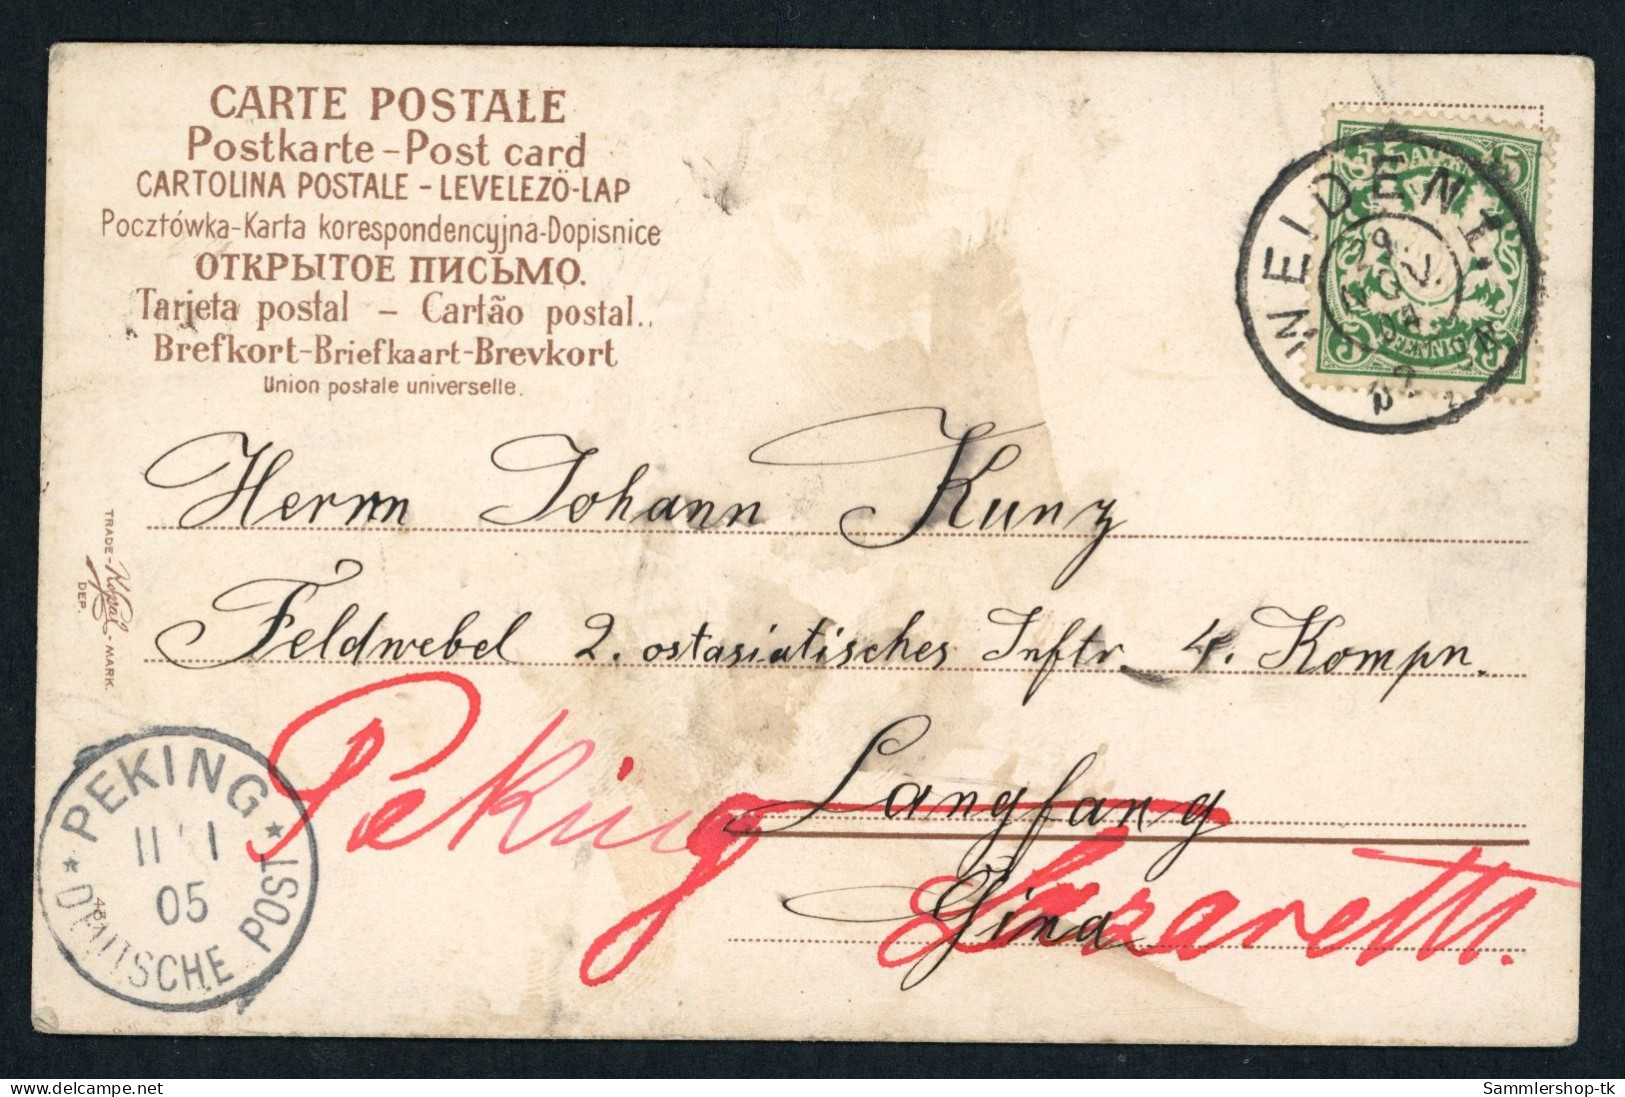 CARTE POSTALE
Postkarte-Post card
CARTOLINA POSTALE - LEVELEZŐ-LAP
Pocztówka-Karta korespondencyjna-Dopisnice
ОТКРЫТОЕ ПИСЬМО.
Tarjeta postal - Cartão postal.
Brefkort-Briefkaart-Brevkort
Union postale universelle.
WEIDEN 1.
29 NOV.
04
5 5
PFENNIG
Herrn Johann Kunz
TRADE-MARK
DEP.
Feldwebel 2. ostasiatisches Inftr. 4. Kompn.
Peking
Langfang
Lazarett.
Gina
PEKING
11 1
05
DEUTSCHE POST
Sammlershop-tk
delcampe.net